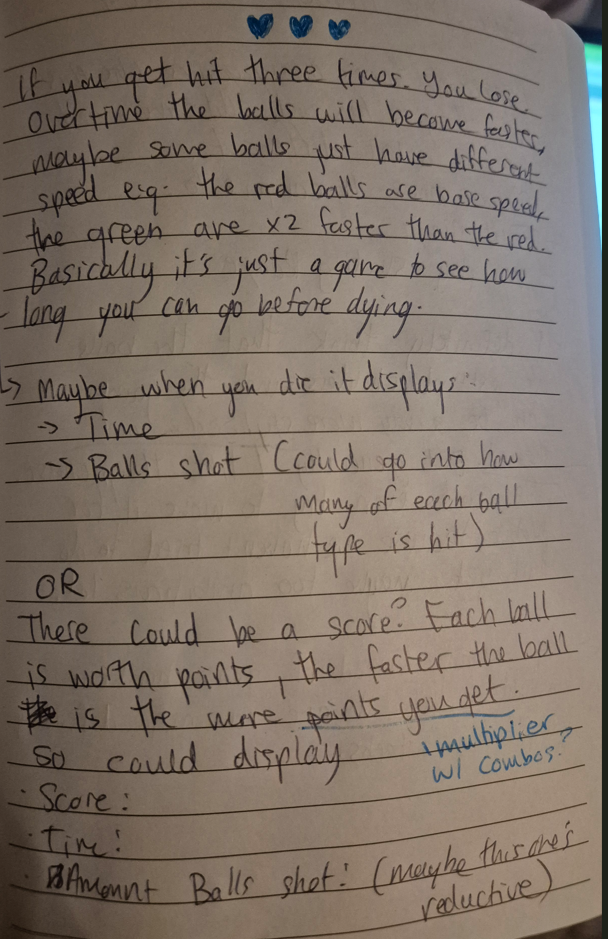 If you get hit three times. You lose.
Overtime the balls will become faster,
maybe some balls just have different
speed e.g. the red balls are base speed,
the green are x2 faster than the red.
Basically it's just a game to see how
- long you can go before dying.
↳ Maybe when you die it displays:
→ Time
→ Balls shot (could go into how
many of each ball
type is hit)
OR
There could be a score? Each ball
is worth points, the faster the ball
is the more points you get.
so could display
\multiplier
w/ combos?
· Score:
· Time:
· Amount Balls shot: (maybe this one's
reductive)